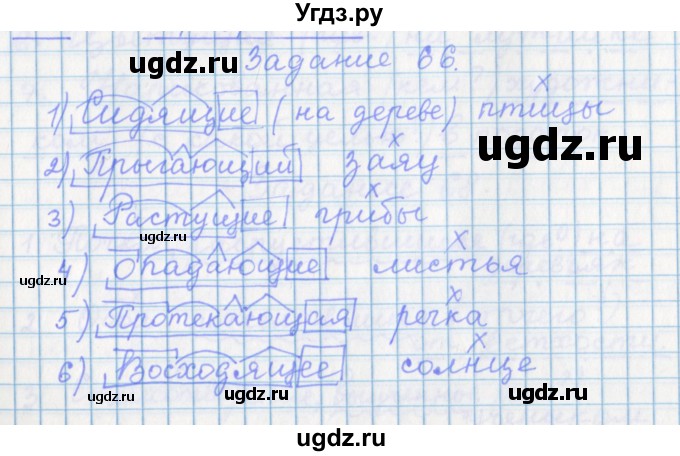 Угдз.ру
Задание 66.
1) Сидящие (на дереве) птицы
2) Прыгающий заяц
3) Растущие грибы
4) Опадающие листья
5) Протекающая речка
6) Восходящее солнце
ugdz.ru
ugdz.ru
ugdz.ru
ugdz.ru
ugdz.ru
ugdz.ru
ugdz.ru
ugdz.ru
ugdz.ru